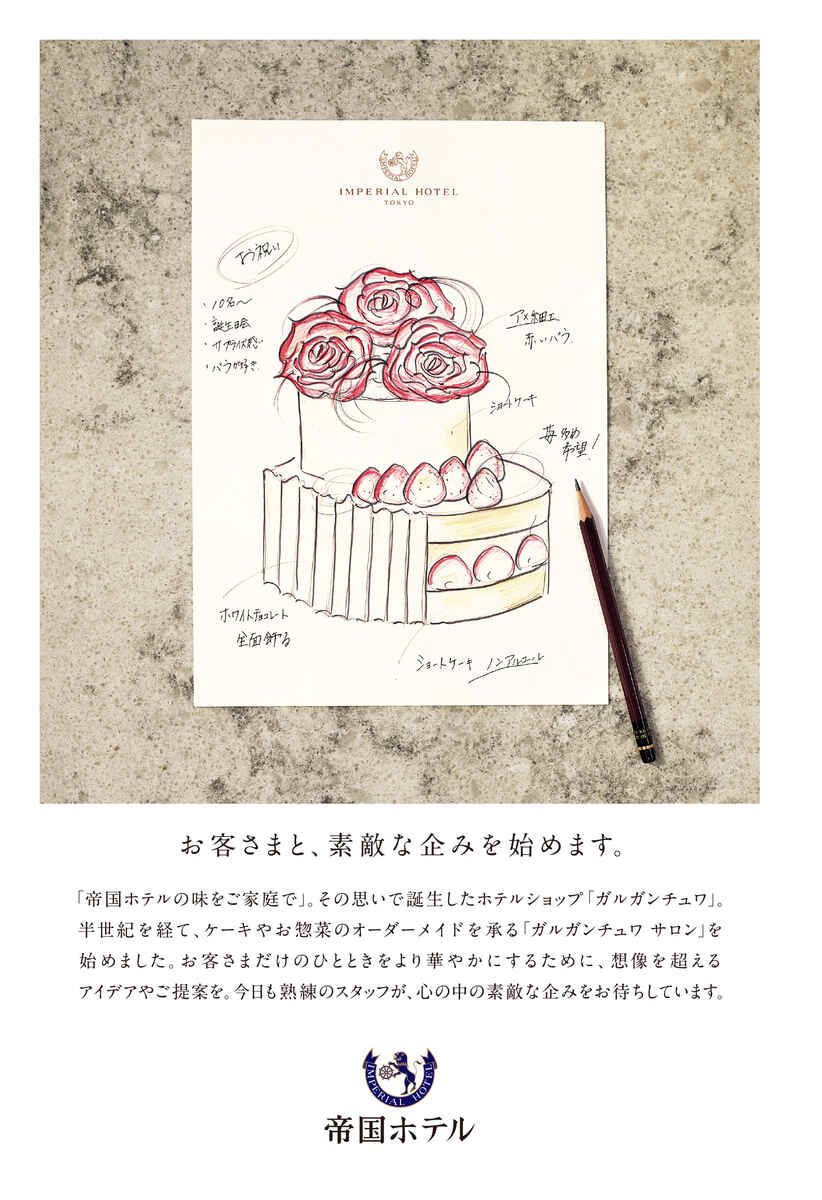 IMPERIAL HOTEL
IMPERIAL HOTEL
TOKYO
お祝い
・10名〜
・誕生日会
・サプライズ感
・バラが好き
アメ細工
赤いバラ
ショートケーキ
苺多め
希望!
ホワイトチョコレート
全面飾る
ショートケーキ ノンアルコール
お客さまと、素敵な企みを始めます。
「帝国ホテルの味をご家庭で」。その思いで誕生したホテルショップ「ガルガンチュワ」。
半世紀を経て、ケーキやお惣菜のオーダーメイドを承る「ガルガンチュワ サロン」を
始めました。お客さまだけのひとときをより華やかにするために、想像を超える
アイデアやご提案を。今日も熟練のスタッフが、心の中の素敵な企みをお待ちしています。
IMPERIAL HOTEL
帝国ホテル